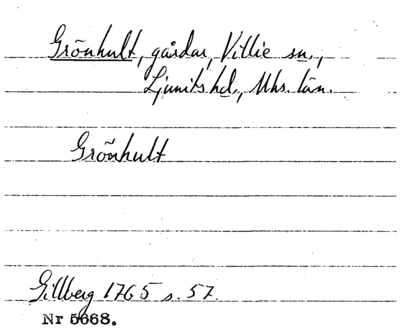 Grönhult, gårdar, Villie sn.,
Ljunits hd., Mhs. län.
Grönhult
Gillberg 1765 s. 57.
Nr 5668.